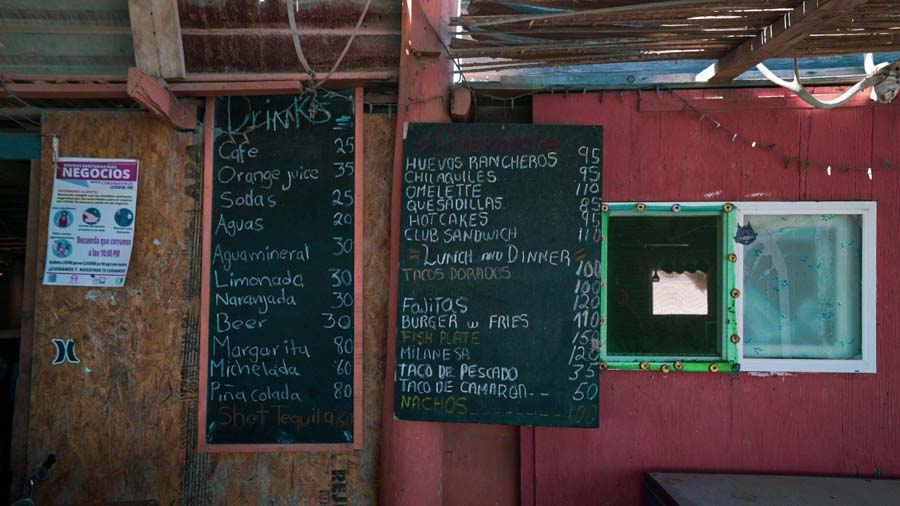 MEDIDAS SANITARIAS PARA
NEGOCIOS
CORONAVIRUS
(COVID-19)
Recuerda que cerramos
a las 10:00 PM
¡CUIDANOS Y NOSOTROS TE CUIDAMOS!
Drinks
Cafe 25
Orange juice 35
Sodas 25
Aguas 20
Aguamineral 30
Limonada 30
Naranjada 30
Beer 30
Margarita 80
Michelada 60
Piña colada 80
Shot Tequila
HUEVOS RANCHEROS 95
CHILAQUILES 95
OMELETTE 110
QUESADILLAS 85
HOT CAKES 95
CLUB SANDWICH 110
= LUNCH AND DINNER =
TACOS DORADOS 100
100
Fajitas 120
BURGER W FRIES 110
FISH PLATE 150
MILANESA 120
TACO DE PESCADO 35
TACO DE CAMARON-- 50
NACHOS 100
REJ